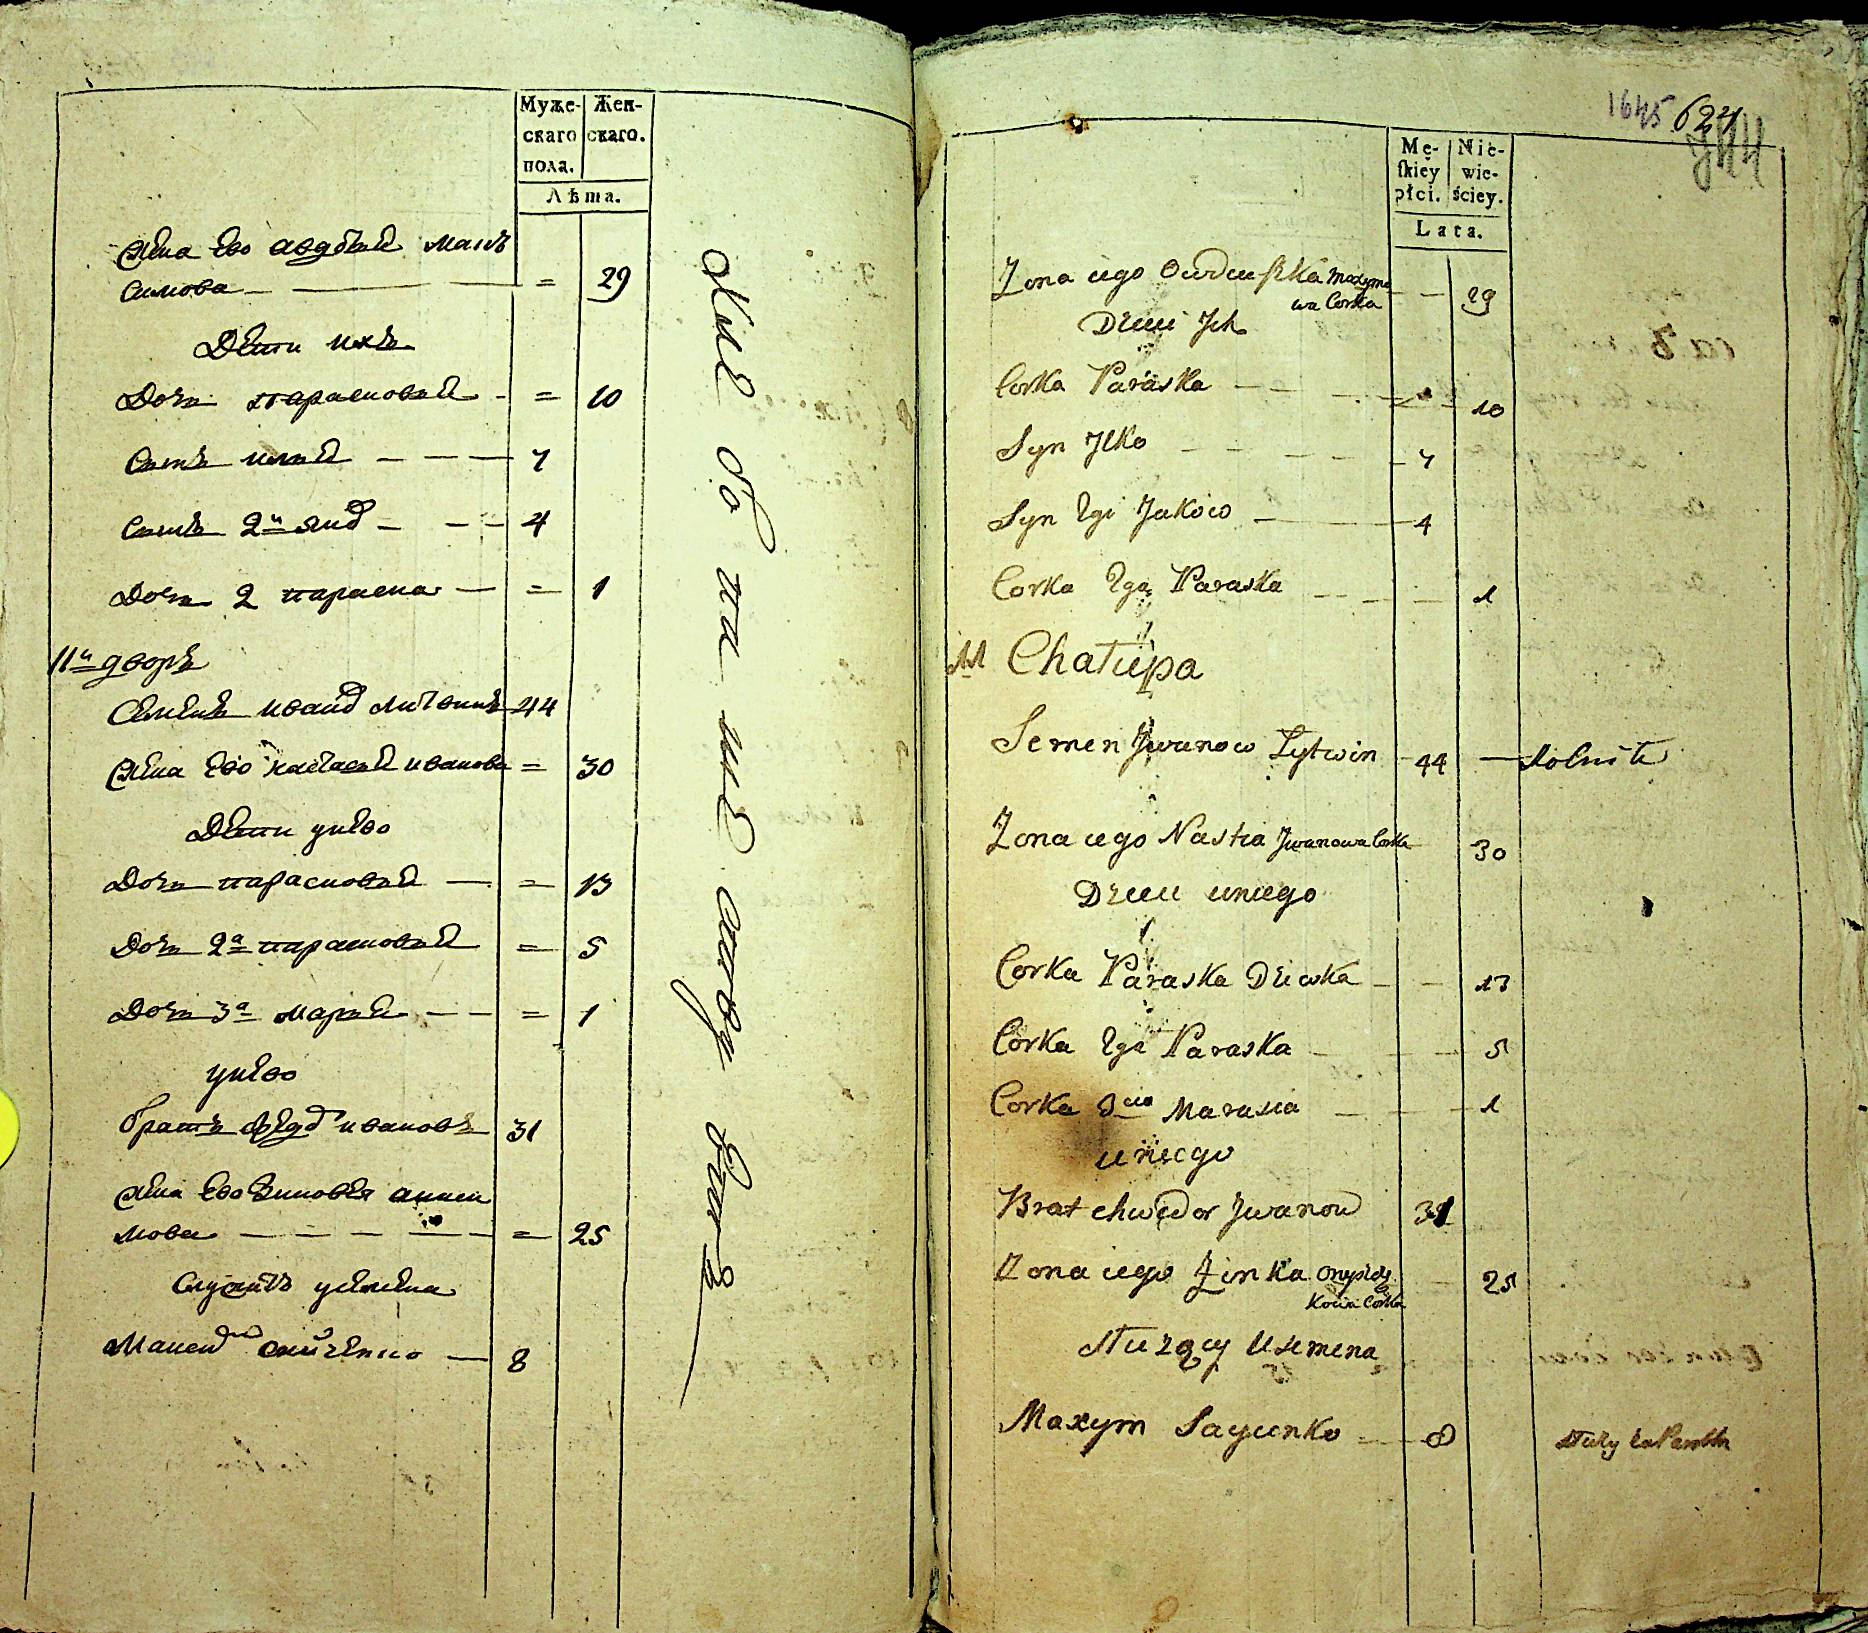 Муже-
скаго
пола.
Жен-
скаго.
Лѣта.
Жена Ево авдотья Макъ
симова — = 29
Дети ихъ
Дочь парасковья — = 10
Сынъ илья — 7
Сынъ 2й яковъ — 4
Дочь 2 параска — = 1
11й дворъ
Семенъ ивановъ литвинъ 44
Жена Ево настасья иванова = 30
Дети унево
Дочь парасковья — = 13
Дочь 2а парасковья = 5
Дочь 3а марья — = 1
унево
братъ федоръ ивановъ 31
Жена Ево Зиновья аниси
мова — = 25
Служитъ усемена
Максимъ — 8
1645 624
544
Mę-
ſkiey
płci.
Nie-
wie-
ściey.
Lata.
Zona iego Owduszka Maxymo
wa Corka — 29
Dzieci Jch
Corka Paraska — 10
Syn Jlko — 7
Syn 2gi Jakow — 4
Corka 2ga Paraska — 1
11 Chałupa
Semen Jwanow Lytwin 44 —
Zona iego Nastia Jwanowa Corka 30
Dzieci uniego
Corka Paraska Dziwka — 13
Corka 2ga Paraska — 5
Corka 3cia Marusia — 1
uniego
Brat chwedor Jwanow 31
Zona iego Zinka
Corka — 25
służący uSemena
Maxym — 8